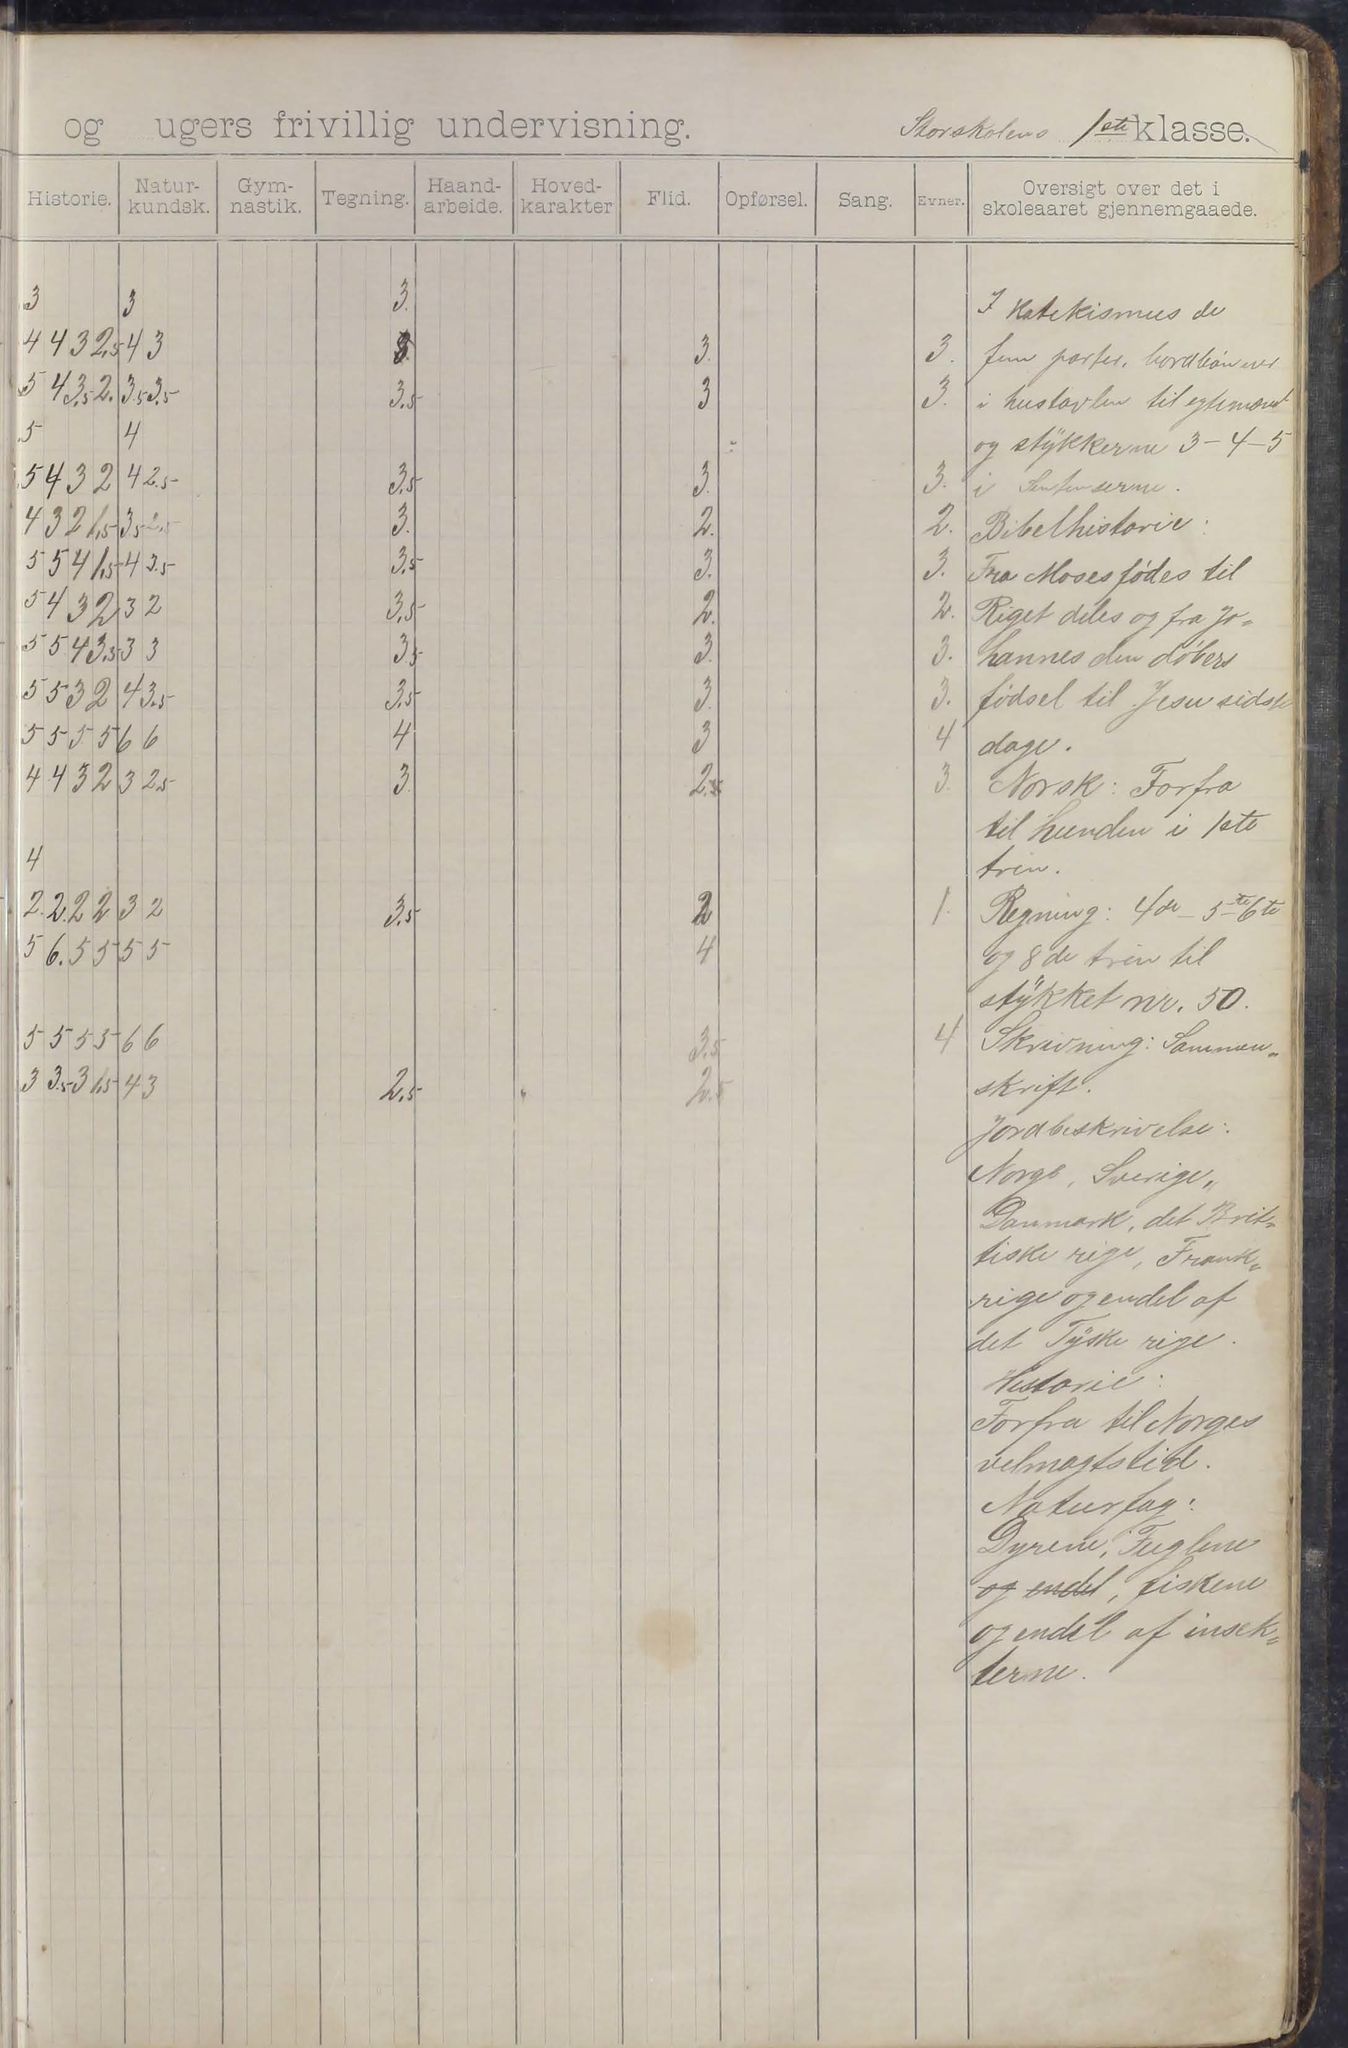 og ugers frivillig undervisning. Storskolens 1ste klasse.
Historie. Natur-kundsk. Gym-nastik. Tegning. Haand-arbeide. Hoved-karakter Flid. Opførsel. Sang. Evner. Oversigt over det i skoleaaret gjennemgaaede.
3 3 3. I Katekismus de
4 4 3 2,5 4 3 3. 3. 3. fem parter, bordbønner
5 4 3,5 2. 3,5 3,5 3,5 3 3. i hustavlen til egtemænd
5 4 og stÿkkerne 3-4-5
5 4 3 2 4 2,5 3,5 3. 3. i
4 3 2 1,5 3,5 2,5 3. 2. 2. Bibelhistorie:
5 5 4 1,5 4 3,5 3,5 3. 3. Fra Moses fødes til
5 4 3 2 3 2 3,5 2. 2. Riget deles og fra Jo-
5 5 4 3,5 3 3 3,5 3. 3. hannes den døbers
5 5 3 2 4 3,5 3,5 3. 3. fødsel til Jesu sidste
5 5 5 5 6 6 4 3 4 dage.
4 4 3 2 3 2,5 3. 2. 3. Norsk: Forfra
til hunden i 1ste
4 trin.
2. 2. 2 2 3 2 3,5 2 1. Regning: 4de-5te 6te
5 6. 5 5 5 5 4 og 8de trin til
stÿkket nr. 50.
5 5 5 5 6 6 3,5 4 Skrivning: Sammen„
3 3,5 3 1,5 4 3 2,5 2,5 skrift.
Jordbeskrivelse:
Norge, Sverige„
Danmark, det Brit-
tiske rige, Frank„
rige og endel af
det Tÿske rige.
Historie:
Forfra til Norges
velmagtstid.
Naturfag:
Dyrene, Fuglene
og endel, fiskene
og endel af insek„
terne.